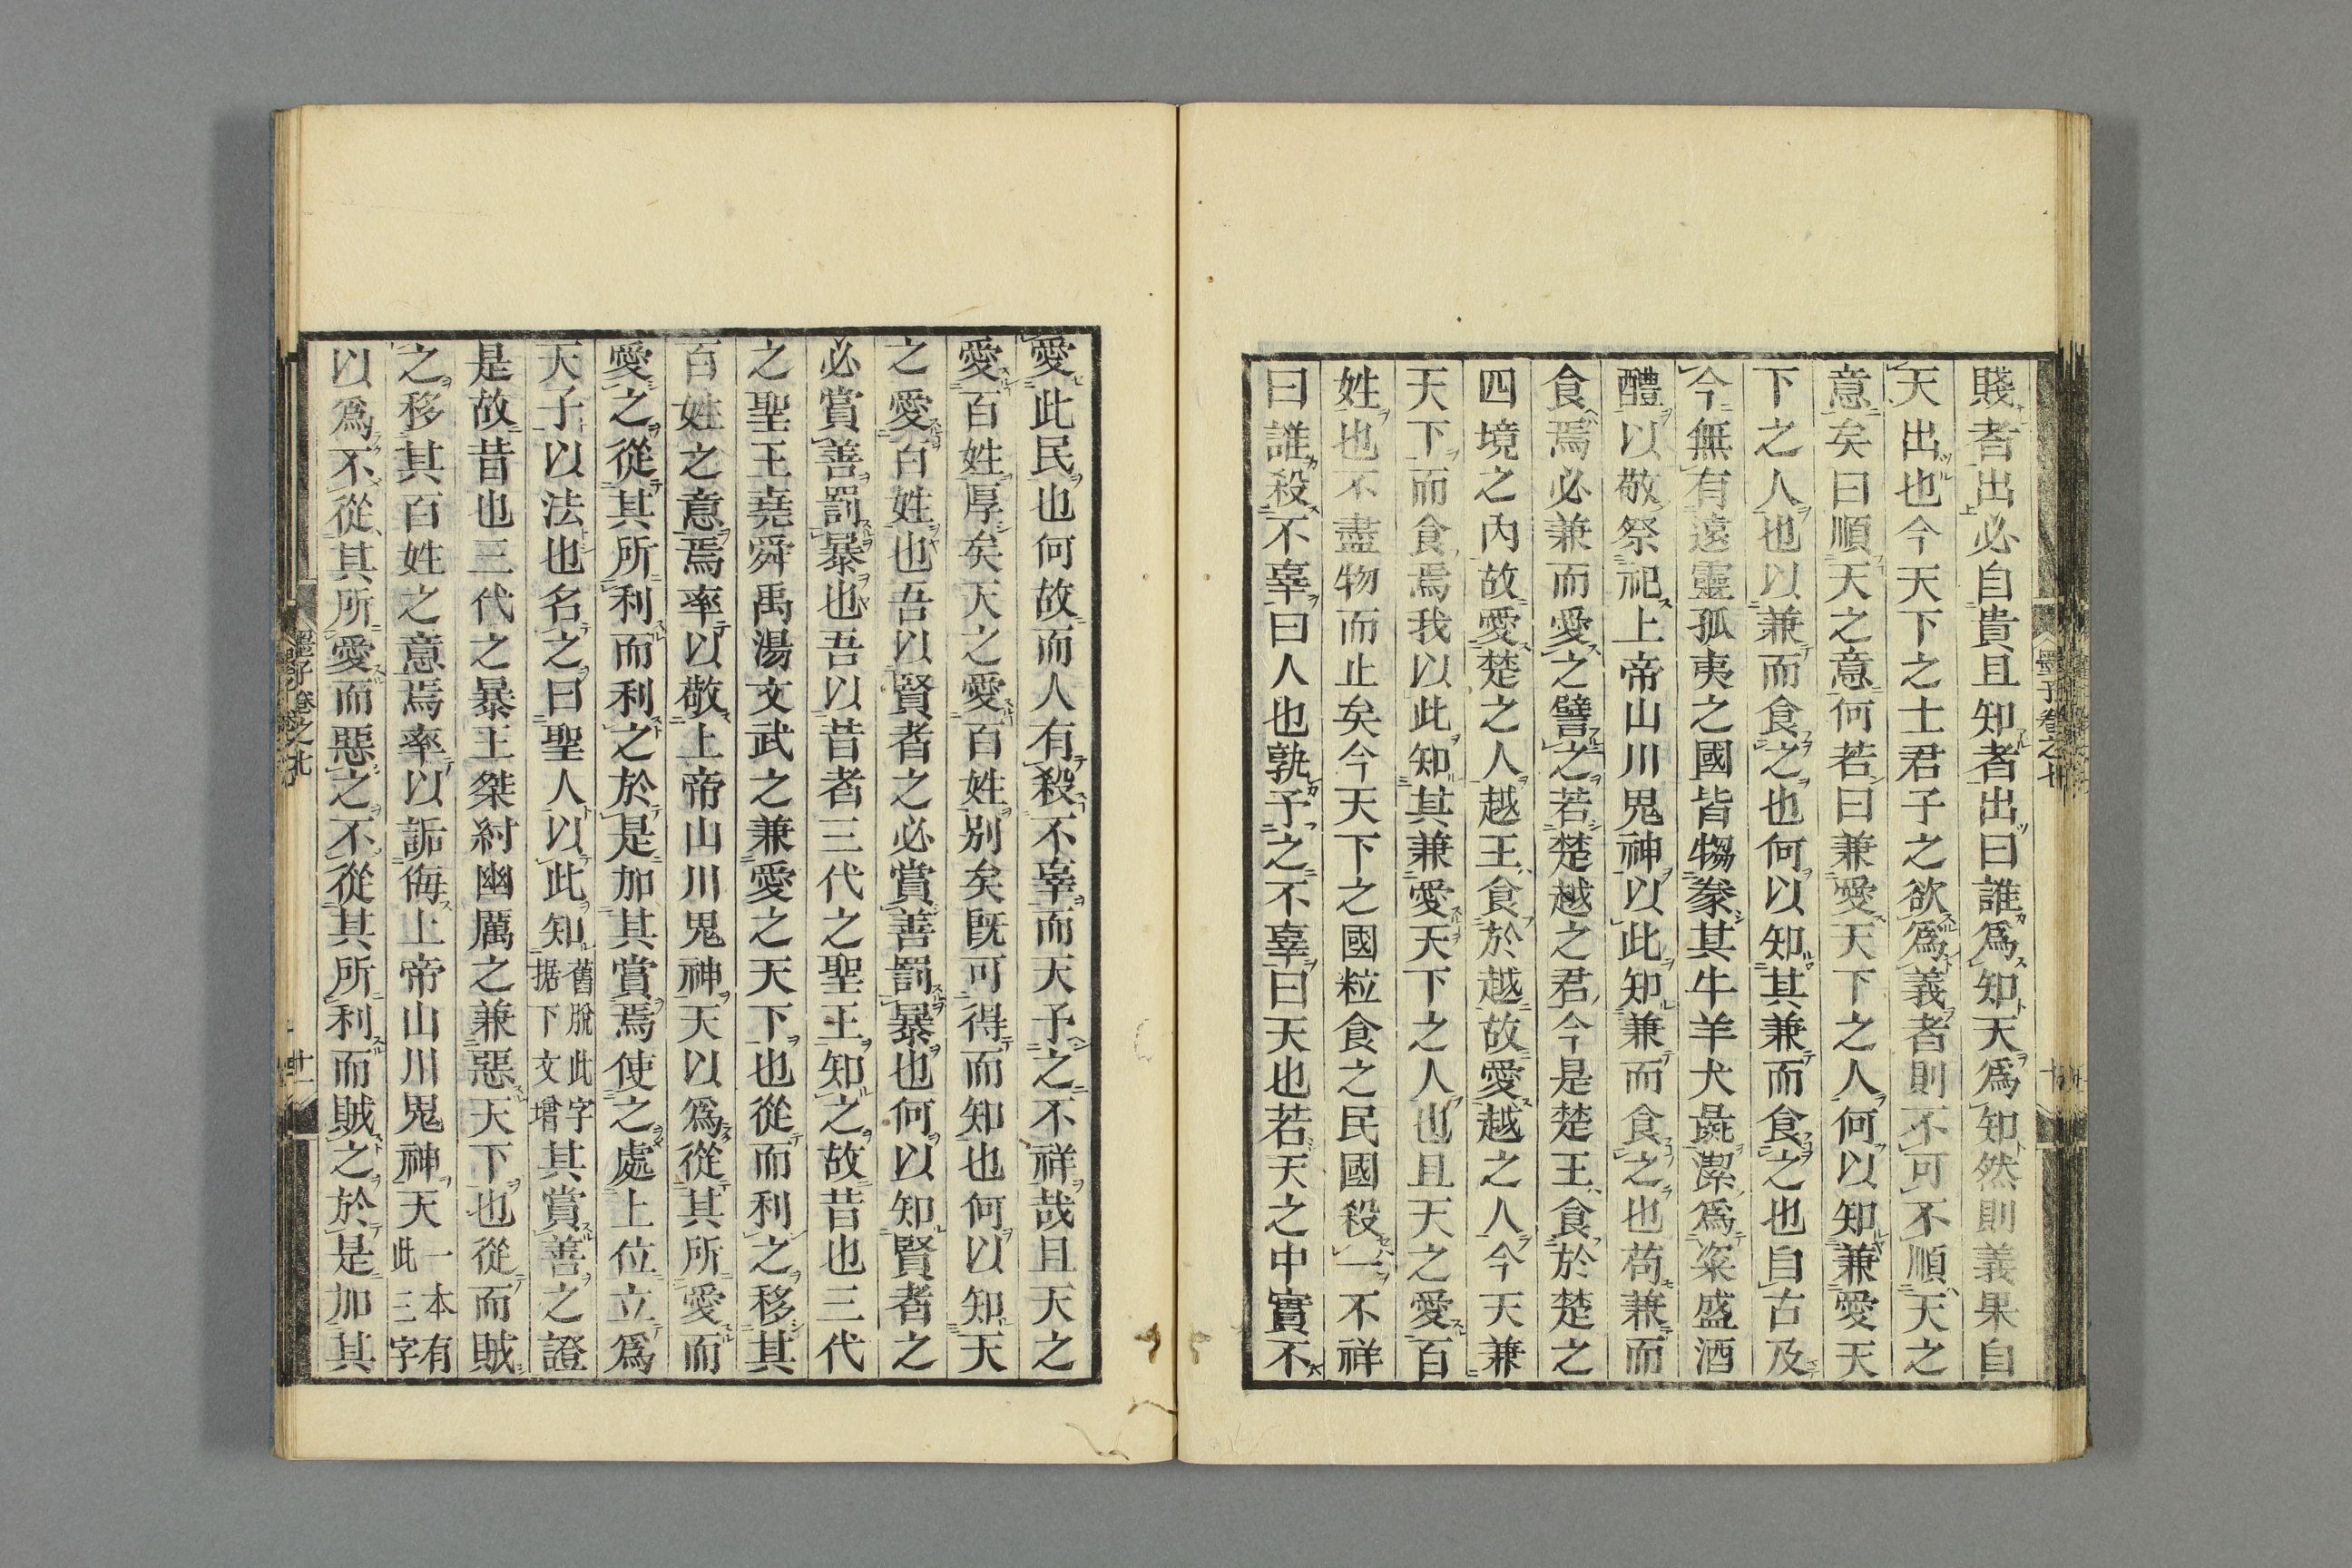 賤者出必自貴且知者出曰誰爲知天爲知然則義果自
天出也今天下之士君子之欲爲義者則不可不順天之
意矣曰順天之意何若曰兼愛天下之人何以知兼愛天
下之人也以兼而食之也何以知其兼而食之也自古及
今無有遠靈孤夷之國皆犓豢其牛羊犬彘潔爲粢盛酒
醴以敬祭祀上帝山川鬼神以此知兼而食之也苟兼而
食焉必兼而愛之譬之若楚越之君今是楚王食於楚之
四境之內故愛楚之人越王食於越故愛越之人今天兼
天下而食焉我以此知其兼愛天下之人也且天之愛百
姓也不盡物而止矣今天下之國粒食之民國殺一不祥
曰誰殺不辜曰人也孰予之不辜曰天也若天之中實不
愛此民也何故而人有殺不辜而天予之不祥哉且天之
愛百姓厚矣天之愛百姓別矣既可得而知也何以知天
之愛百姓也吾以賢者之必賞善罰暴也何以知賢者之
必賞善罰暴也吾以昔者三代之聖王知之故昔也三代
之聖王堯舜禹湯文武之兼愛之天下也從而利之移其
百姓之意焉率以敬上帝山川鬼神天以爲從其所愛而
愛之從其所利而利之於是加其賞焉使之處上位立爲
天子以法也名之曰聖人以此知舊脫此字据下文增其賞善之證
是故昔也三代之暴王桀紂幽厲之兼惡天下也從而賊
之移其百姓之意焉率以詬侮上帝山川鬼神天一本有此三字
以爲不從其所愛而惡之不從其所利而賊之於是加其
墨子卷之七
十一